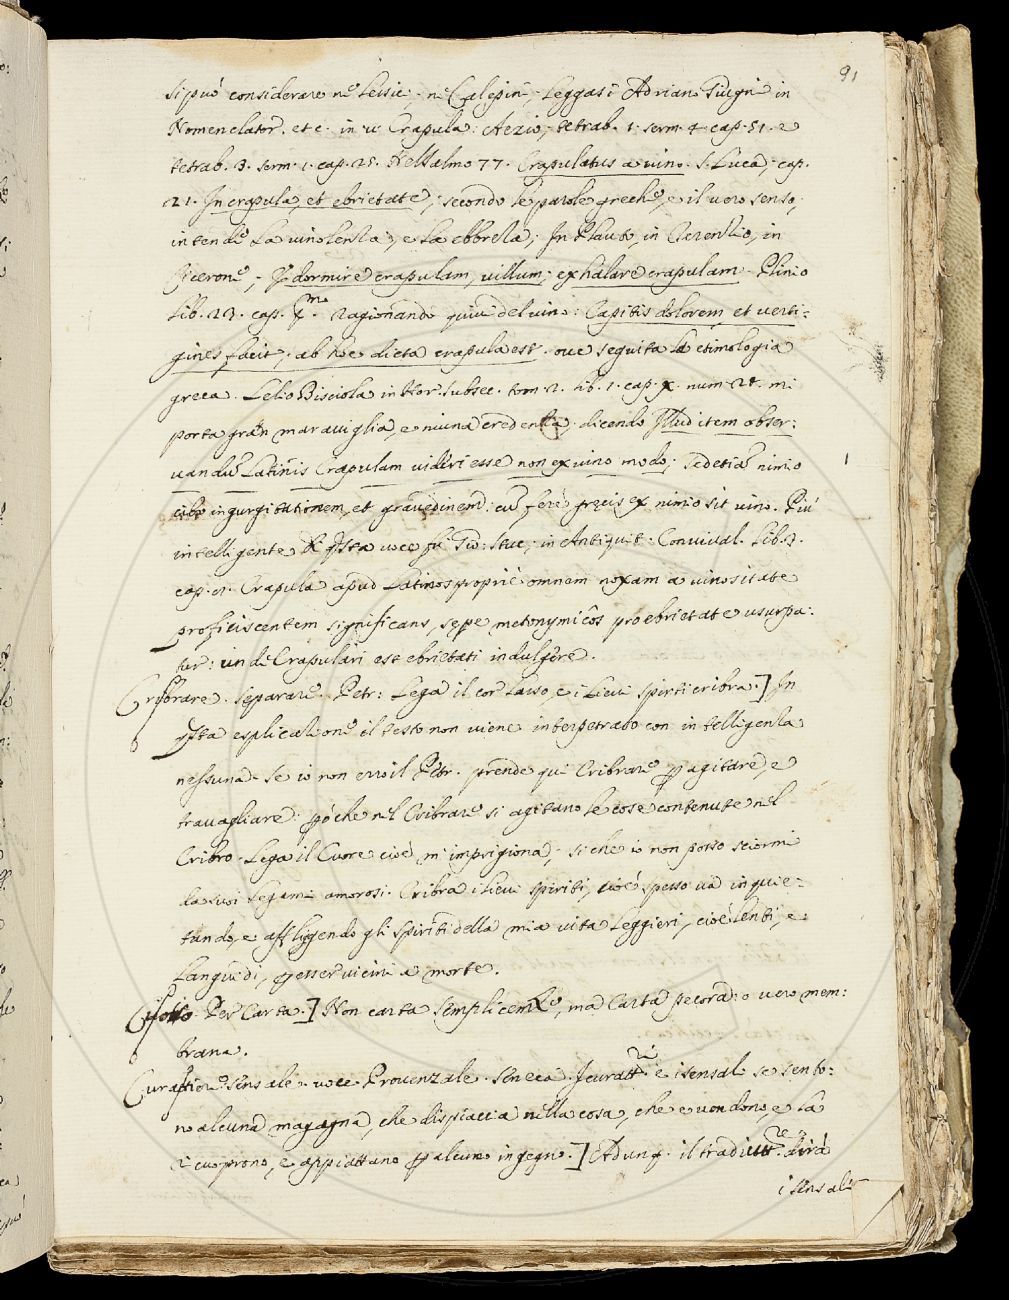 91
si può considerare ne' Lessic: ne' Calepin: Leggasi Adriano Giugni in
Nomenclator. et c. in v. Crapula: Aezio, tetrab. 1. serm. 4 cap. 51. e
tetrab. 3. serm. 1. cap. 25. Nel Salmo 77. Crapulatus a vino. S. Luca, cap.
21. In crapula, et ebrietate; secondo le parole greche, e il vero senso,
intende la vinolenza, e la ebbreza; In Plauto, in Terenzio, in
Cicerone; Edormire crapulam, villum; exhalare crapulam. Plinio
Lib. 23. cap. pmo. ragionando quivi del vino: Capitis dolorem, et verti=
gines facit; ab hoc dicta crapula est. ove seguita la etimologia
greca. Lelio Bisciola in Hor. subsec. tom. 2. lib. 1. cap. x. num. 21. mi
porta gran maraviglia, e niuna credenza, dicendo Illud item obser:
vandu Latinis Crapulam videri esse non ex vino modo; sed etia nimio
cibo ingurgitationem, et gravedinem: cu fere grecis ex nimio sit vino. Più
intelligente di qsta voce fu Gio: Stuc; in Antiquit: Convival. Lib. 3.
cap. Crapula apud Latinos proprie omnem noxam a vinositate
proficiscentem significans, sepe metonymicos pro ebrietate usurpa:
tur: unde Crapulari est ebrietati indulgere.
Cribrare. separare. Petr: Lega il cor lasso, e i lievi spirti cribra.] In
qsta esplicazione il testo non viene interpetrato con intelligenza
nessuna. Se io non erro il Petr. prende qui Cribrare p agitare, e
travagliare: pò che nel Cribrare si agitano le cose contenute nel
Cribro. Lega il Cuore cioè m'imprigiona, si che io non posso sciormi
da suoi legami amorosi. Cribra i lievi spiriti, cioè spesso va inquie=
tando, e affligendo gli spiriti della mia vita leggieri, cioè lenti, e
languidi, p esser vicini a morte.
Per Carta.] Non carta semplicemte, ma Carta pecora: o vero mem:
brana.
Curattiere. sensale. voce Provenzale. Seneca. I curattri e i sensali se sento:
no alcuna magagna, che dispiaccia nella cosa, che e vendono, e la
ricuoprono, e appiattano p alcuno ingegno.] Adunq. il traduttre. dirà
i sensali